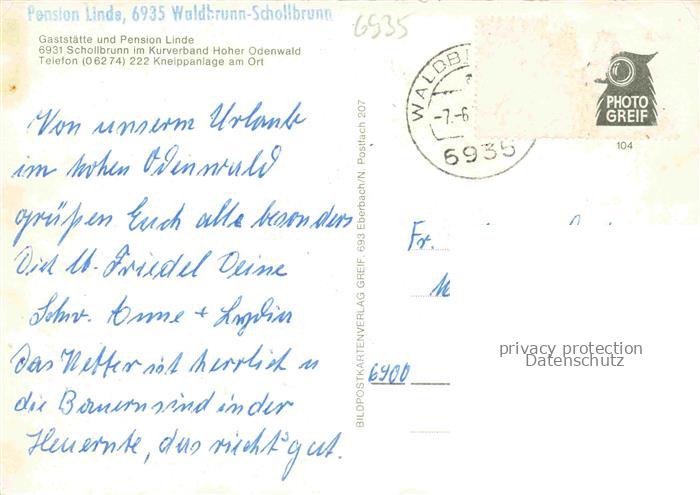 Pension Linde, 6935 Waldbrunn-Schollbrunn
6935
Gaststätte und Pension Linde
6931 Schollbrunn im Kurverband Hoher Odenwald
Telefon (06274) 222 Kneippanlage am Ort
WALDB
-7.-6
6935
PHOTO
GREIF
104
Von unserm Urlaub
im hohen Odenwald
grüßen Euch alle besonders
Dich lb. Friedel Deine
Schw. Anne + Lydia
Das Wetter ist herrlich u
die Bauern sind in der
Heuernte, das riecht's gut.
BILDPOSTKARTENVERLAG GREIF, 693 Eberbach/N. Postfach 207
Fr.
6900
privacy protection
Datenschutz